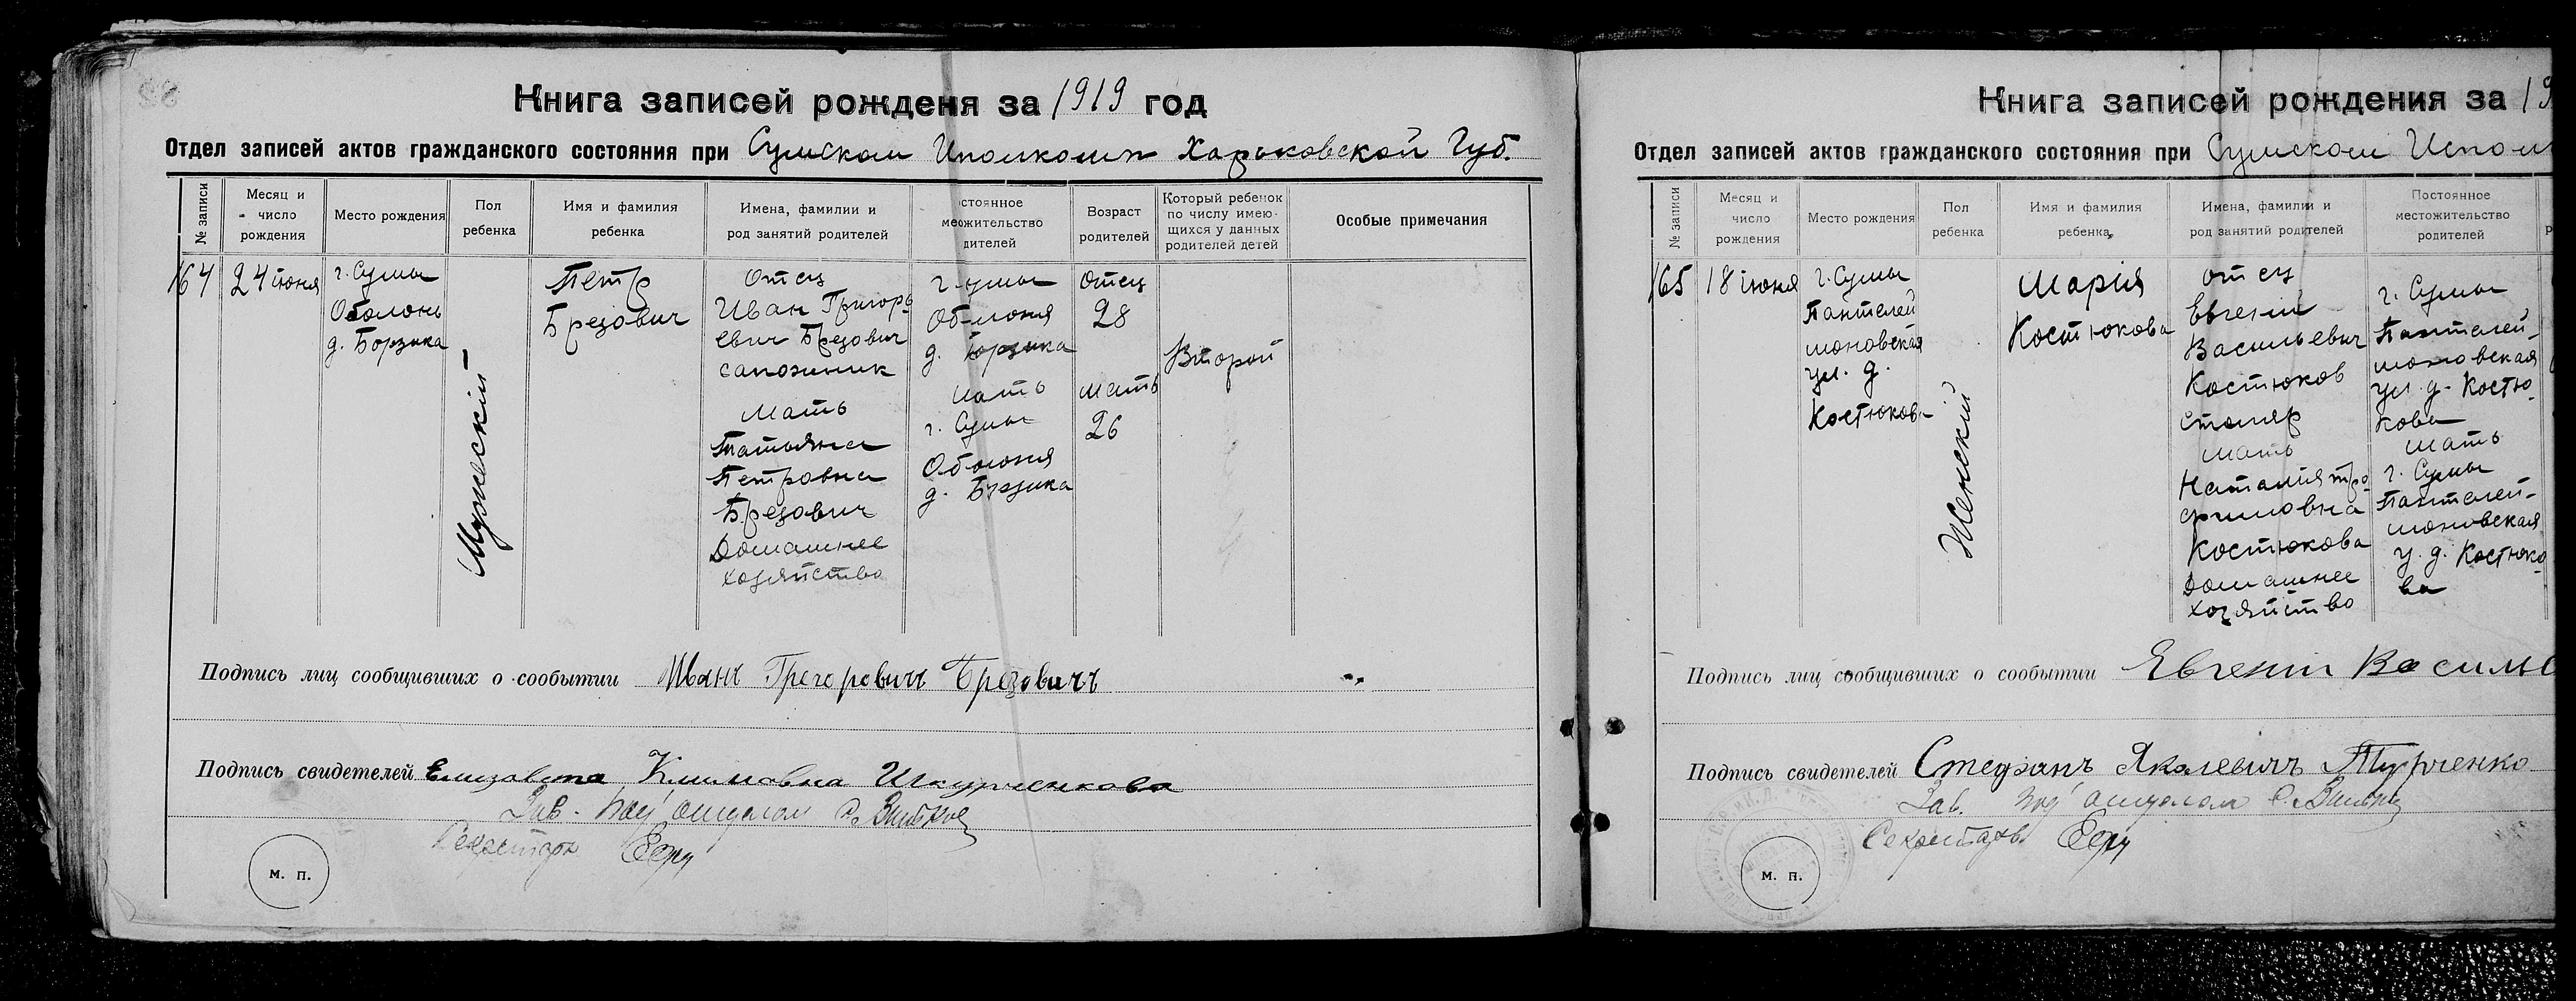 Книга записей рожденя за 1919 год
Отдел записей актов гражданского состояния при Сумском Исполкоме Харьковской Губ.
№ записи
Месяц и
число
рождения
Место рождения
Пол
ребенка
Имя и фамилия
ребенка
Имена, фамилии и
род занятий родителей
стоянное
местожительство
дителей
Возраст
родителей
Который ребенок
по числу имею-
щихся у данных
родителей детей
Особые примечания
164
24 июня
г. Сумы
Оболонь
д. Борзика
Мужеский
Петр
Брезович
Отец
Иван Григорь
евич Брезович
сапожник
Мать
Татьяна
Петровна
Брезович
Домашнее
хозяйство
г. Сумы
Оболоня
д.
мать
г. Сумы
Оболоня
д.
Отец
28
мать
26
Второй
Подпись лиц сообщивших о сообытии Иванъ Грегоровичъ Брезовичъ
Подпись свидетелей Елизавета Климовна Шкурченкова
Зав. Под отделом
Секретарь
М. П.
Книга записей рождения за 19
Отдел записей актов гражданского состояния при Сумском Исполк
№ записи
Месяц и
число
рождения
Место рождения
Пол
ребенка
Имя и фамилия
ребенка
Имена, фамилии и
род занятий родителей
Постоянное
местожительство
родителей
165
18 июня
г. Сумы
Пантелей
моновская
ул. д.
Костюкова
Женский
Марія
Костюкова
отец
Евгений
Васильевич
Костюков
столяр
мать
Наталия Тро-
фимовна
Костюкова
Домашнее
хозяйство
г. Сумы
Пантелей-
моновская
ул. д. Костю-
кова
мать
г. Сумы
Пантелей-
моновская
у. д. Костюко-
ва
Подпись лиц сообщивших о сообытии Евгений Василь
Подпись свидетелей Стефанъ Яколевичъ Турченко
Зав. Под отделом
Секретарь
М. П.